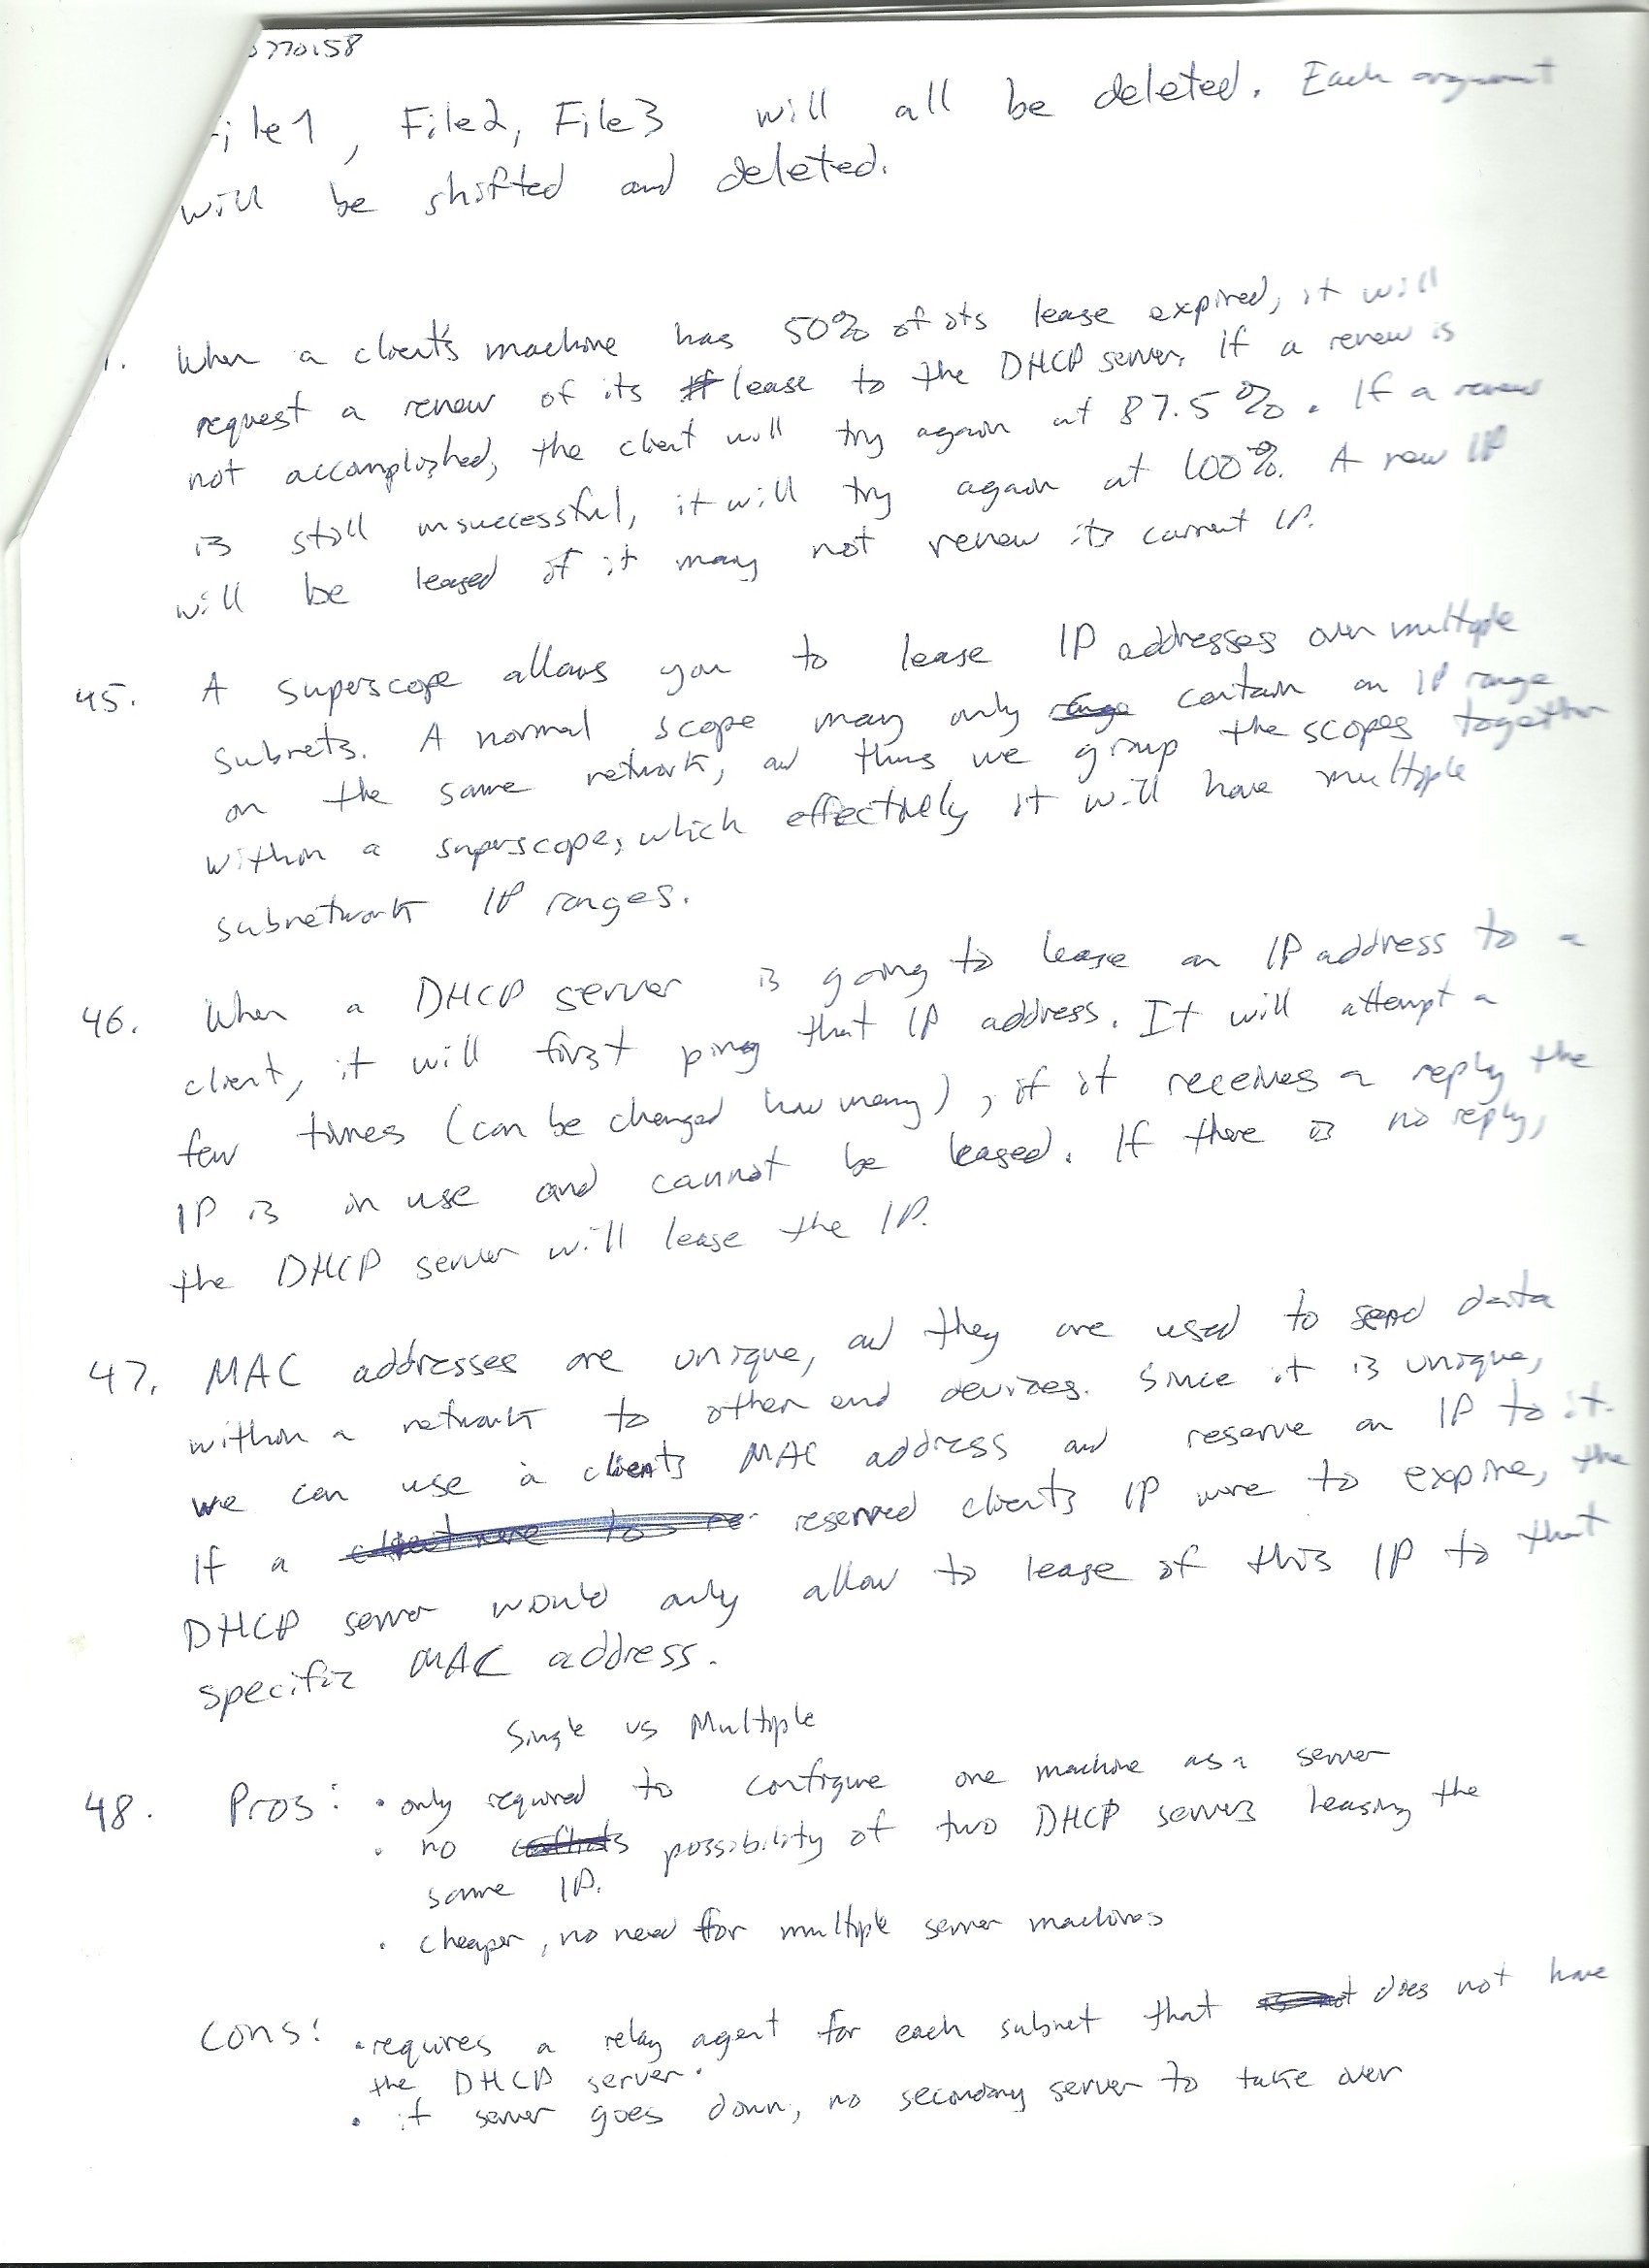 770158
File1, File2, File3 will all be deleted. Each argument
will be shifted and deleted.
When a client's machine has 50% of its lease expired, it will
request a renew of its lease to the DHCP server. If a renew is
not accomplished, the client will try again at 87.5%. If a renew
is still unsuccessful, it will try again at 100%. A new IP
will be leased if it may not renew its current IP.
45. A superscope allows you to lease IP addresses over multiple
subnets. A normal scope may only contain an IP range
on the same network, and thus we group the scopes together
within a superscope, which effectively it will have multiple
subnetwork IP ranges.
46. When a DHCP server is going to lease an IP address to a
client, it will first ping that IP address. It will attempt a
few times (can be changed how many), if it receives a reply the
IP is in use and cannot be leased. If there is no reply,
the DHCP server will lease the IP.
47. MAC addresses are unique, and they are used to send data
within a network to other end devices. Since it is unique,
we can use a clients MAC address and reserve an IP to it.
If a reserved clients IP were to expire, the
DHCP server would only allow to lease of this IP to that
specific MAC address.
Single vs Multiple
48. Pros: • only required to configure one machine as a server
• no possibility of two DHCP servers leasing the
same IP.
• cheaper, no need for multiple server machines
Cons: • requires a relay agent for each subnet that does not have
the DHCP server.
• if server goes down, no secondary server to take over